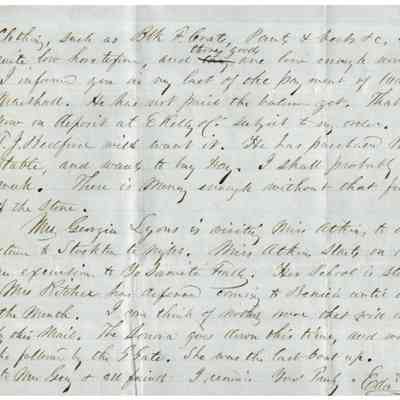 Clothing, such as Blk F. Coats, Pants & Vests &c,
quite low heretofore, and they good are low enough now
I informed you in my last of the payment of
Marshall. He has not paid the balance yet. That
now on deposit at E Kelly & Co subject to my order.
T. J. Bedford will want it. He has purchased
Stable, and wants to buy Hay. I shall probably
week. There is Money enough without that for
of the store.
Mrs Georgia Lyons is visiting Miss Atkin, to
return to Stockton to Miss. Miss Atkin starts on
an excursion to Yo Samite Falls. Her School is
Mrs Ritchie has defered coming to Benicia until
the Month. I can think of nothing more that will
by this Mail. The Sonora goes down this time, and
be followed by the G Gate. She was the last boat up.
to Mrs Gray & all friends I remain Yours Truly